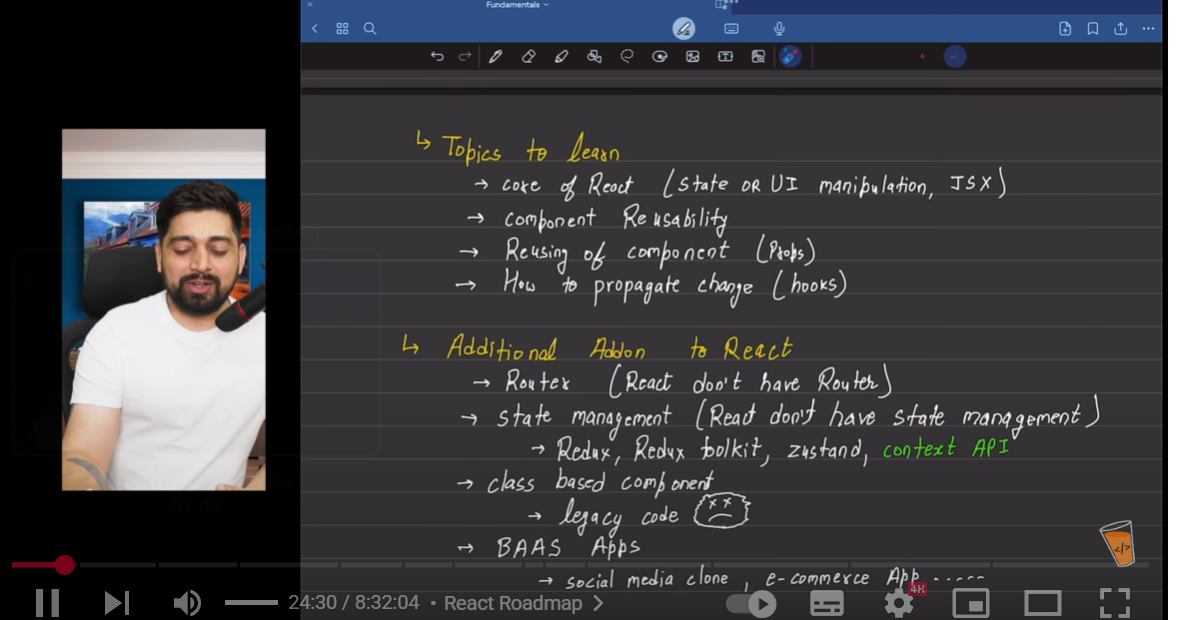 Fundamentals
↳ Topics to learn
→ core of React (state OR UI manipulation, JSX)
→ component Reusability
→ Reusing of component (Props)
→ How to propagate change (hooks)
↳ Additional Addon to React
→ Router (React don't have Router)
→ state management (React don't have state management)
→ Redux, Redux toolkit, zustand, context API
→ class based component
→ legacy code
→ BAAS Apps
→ social media clone, e-commerce App ......
</>
51:42
24:30 / 8:32:04 • React Roadmap
4K